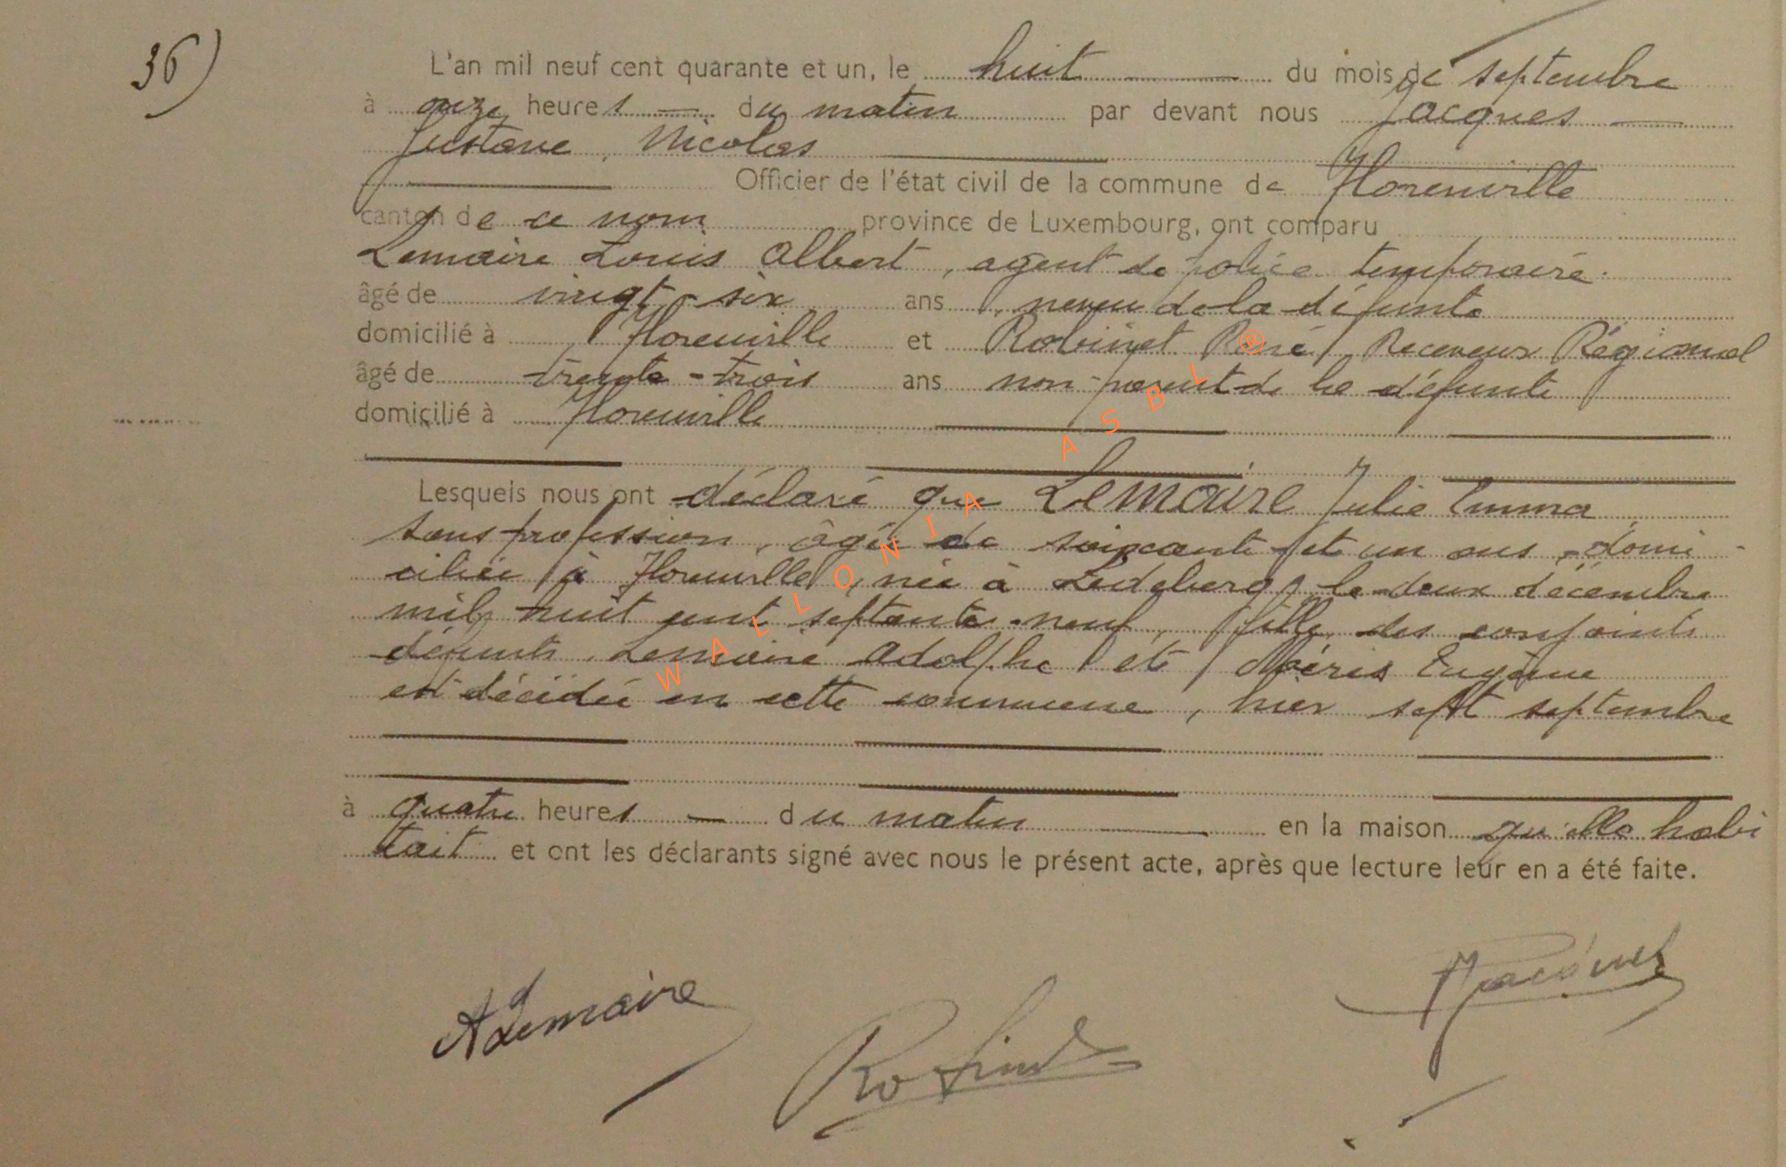 36)
L'an mil neuf cent quarante et un, le huit du mois de septembre
à onze heures du matin par devant nous Jacques
Gustave, Nicolas
Officier de l'état civil de la commune de Florenville
canton de ce nom province de Luxembourg, ont comparu
Lemaire Louis Albert, agent de police temporaire
âgé de vingt-six ans, neveu de la défunte
domicilié à Florenville et Robinet René, Receveur Régional
âgé de trente-trois ans non-parent de la défunte
domicilié à Florenville
Lesquels nous ont déclaré que Lemaire Julie Emma
sans profession, âgée de soixante et un ans, domi
ciliée à Florenville, née à Ledeberg, le deux décembre
mil huit cent septante-neuf, fille des conjoints
défunts Lemaire Adolphe et Eugénie
est décédée en cette commune, hier sept septembre
à quatre heures du matin en la maison qu'elle habi
tait et ont les déclarants signé avec nous le présent acte, après que lecture leur en a été faite.
ALemaire
Robinet
Jacques
WALLONIA ASBL ®